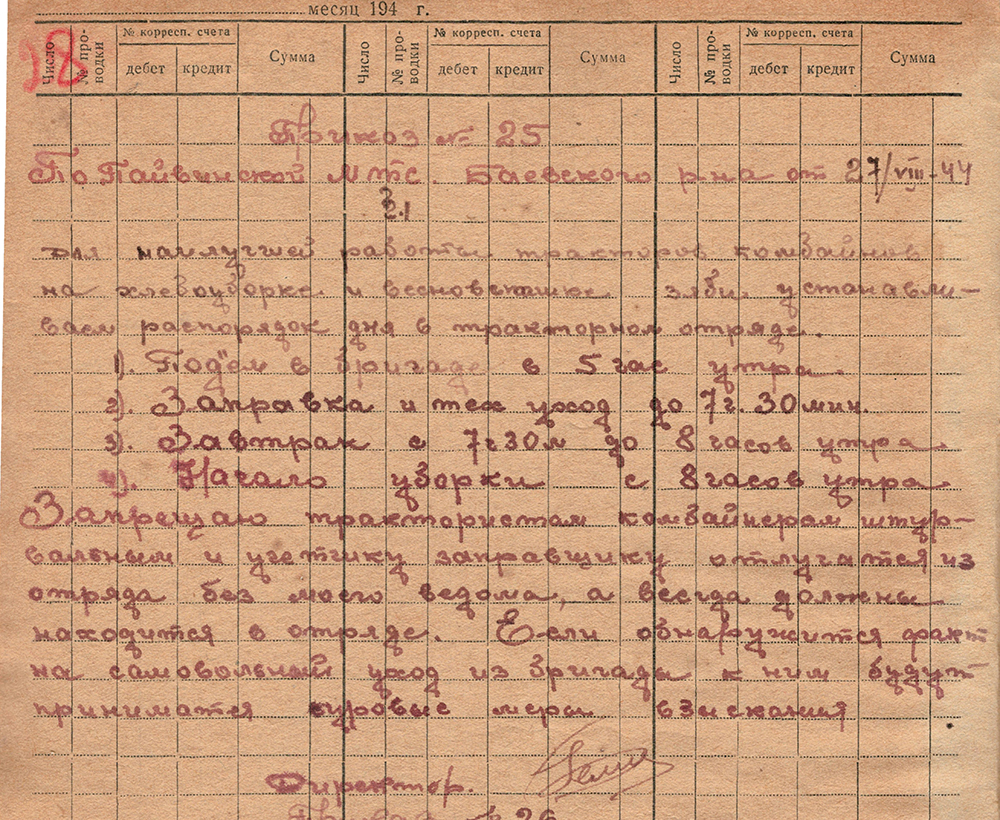 месяц 194 г.
Число № проводки № корресп. счета дебет кредит Сумма Число № проводки № корресп. счета дебет кредит Сумма Число № проводки № корресп. счета дебет кредит Сумма
98
Приказ № 25
По Пайвинской МТС. Баевского р-на от 27/VIII-44
§ 1
Для наилучшей работы тракторов комбайнов
на хлебоуборке и весновспашке зяби. устанавли-
ваем распорядок дня в тракторном отряде.
1). Под"ем в бригаде в 5 час утра.
2). Заправка и тех уход до 7 ч. 30 мин.
3). Завтрак с 7 ч 30 м до 8 часов утра.
4). Начало уборки с 8 часов утра.
Запрещаю трактористам комбайнерам штур-
вальным и учетчику заправщику отлучатся из
отряда без моего ведома, а всегда должны
находится в отряде. Если обнаружится факт
на самовольный уход из бригады к ним будут
приниматся суровые меры взыскания
Директор.
Приказ № 26